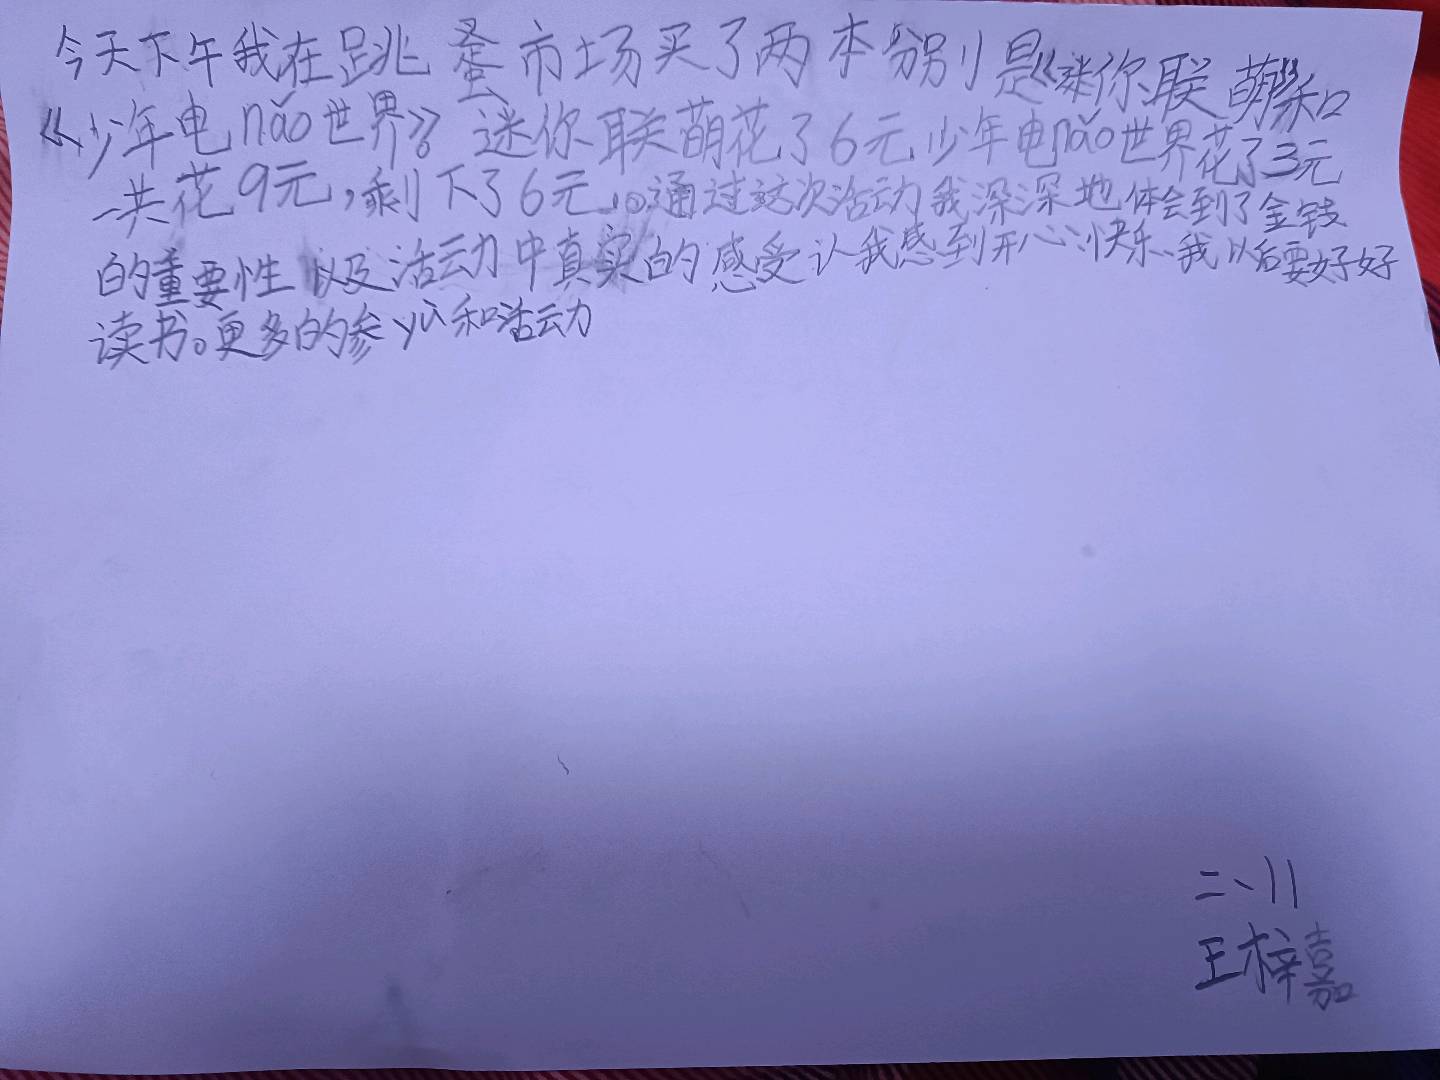 今天下午我在跳蚤市场买了两本分别是《迷你联萌》和
《少年电nǎo世界》。迷你联萌花了6元少年电nǎo世界花了3元
一共花9元,剩下了6元。通过这次活动我深深地体会到了金钱
的重要性以及活动中真实的感受认我感到开心、快乐、我以后要好好
读书。更多的参yù和活动
二、11
王梓嘉